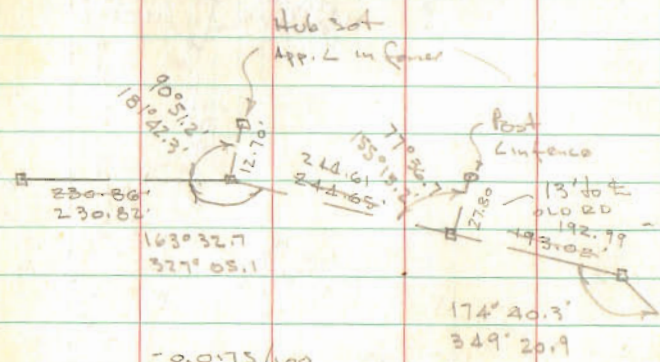 Hub Set
App. L in fence
90° 51.2'
181° 42.3'
12.70'
230.86'
230.82'
163° 32.7
327° 05.1
244.61
244.65'
77° 36.7
155° 13.2'
Post
L in fence
27.80
13' to ℄
OLD RD
192.99
193.03'
174° 40.3'
349° 20.9
-0.0175/100